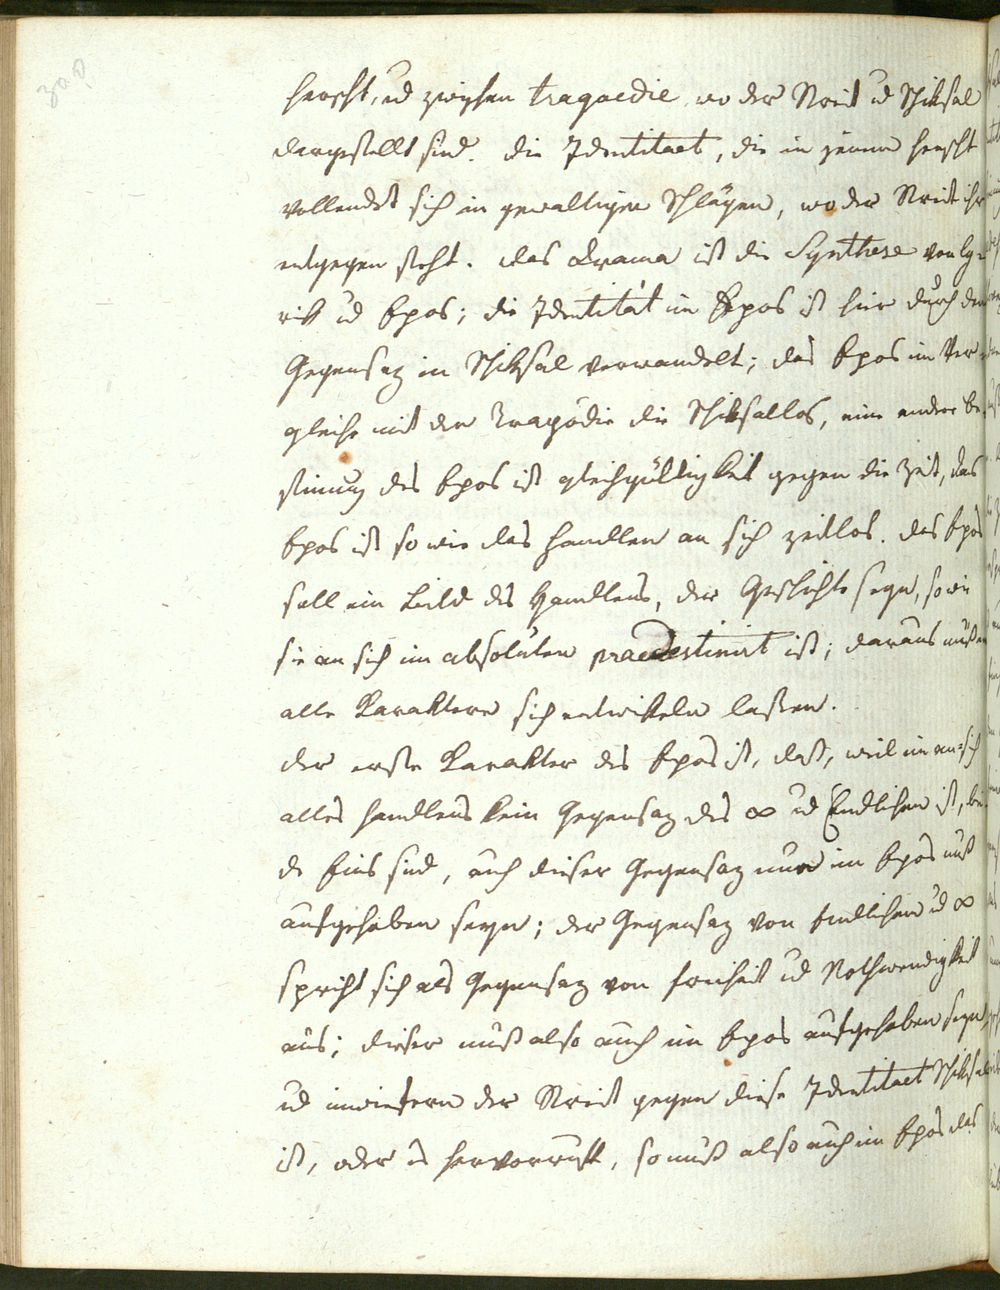 herscht, ud zwischen tragoedie, wo der Streit ud Schiksal
dargestellt sind. die Identitaet, die in jenem herscht
vollendet sich in gewaltigen Schlägen, wo der Streit ihr
entgegen steht. das Drama ist die Synthese von Ly-
rik ud Epos; die Identität im Epos ist hier durch den
Gegensaz in Schiksal verwandelt; das Epos im Ver-
gleiche mit der Tragödie die Schiksallos, eine andere be-
stimung des Epos ist gleichgültigkeit gegen die Zeit, das
Epos ist so wie das handlen an sich zeitlos. das Epos
soll ein Bild des Handlens, der Geschichte seyn, so wie
sie an sich im absoluten praedestinirt ist; daraus müßen
alle Karaktere sich entwikeln laßen.
der erste Karakter des Epos ist, daß, weil im an-sich
alles handlens kein Gegensaz des ∞ ud Endlichen ist, bei-
de Eins sind, auch dieser Gegensaz nur im Epos muß
aufgehoben seyn; der Gegensaz von Endlichen ud ∞
spricht sich als Gegensaz von freiheit ud Nothwendigkeit
aus; dieser muß also auch im Epos aufgehoben seyn,
ud inwiefern der Streit gegen diese Identitaet Schiksal
ist, oder es hervorruft, so muß also auch im Epos das